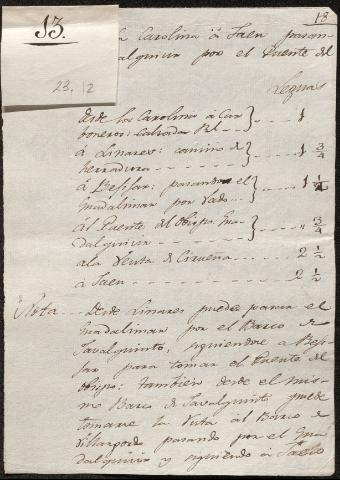 13.
23. 12
13
la Carolina â Jaen pasan-
alquivir por el Puente del
Leguas
desde la Carolina â Car
boneros: Calzada Rl. 1
â Linares: camino de
herradura 1 3/4
â Bejijar: pasando el
Guadalimar por Vado 1 1/4
âl Puente del Obispo, Gua
dalquivir " 3/4
a la Venta de 2 1/2
â Jaen 2 1/2
Nota Desde Linares puede pasar el
Guadalimar por el Barco de
Javalquinto, siguiendose a Beji
jar para tomar el Puente del
Obispo: tambien desde el mis-
mo Barco de Javalquinto puede
tomarse la Ruta âl Barco de
pasando por el Gua
dalquivir y siguiendo â